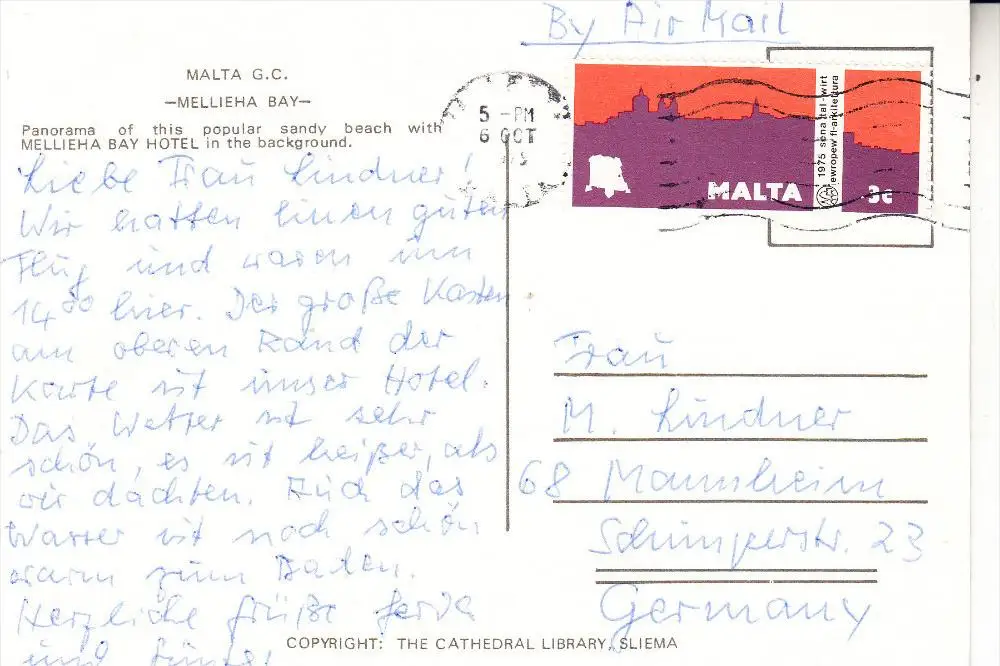 By Air Mail
MALTA G.C.
—MELLIEHA BAY—
Panorama of this popular sandy beach with
MELLIEHA BAY HOTEL in the background.
5 - PM
6 OCT
1975 sena ttal-wirt
ewropew fl-arkitettura
MALTA
3c
Liebe Frau Lindner!
Wir hatten einen guten
Flug und waren um
14 00 hier. Der große Kasten
am oberen Rand der
Karte ist unser Hotel.
Das Wetter ist sehr
schön, es ist heißer, als
wir dachten. Auch das
Wasser ist noch schön
warm zum Baden.
Herzliche Grüße
und
Frau
M. Lindner
68 Mannheim
Schimperstr. 23
Germany
COPYRIGHT: THE CATHEDRAL LIBRARY, SLIEMA